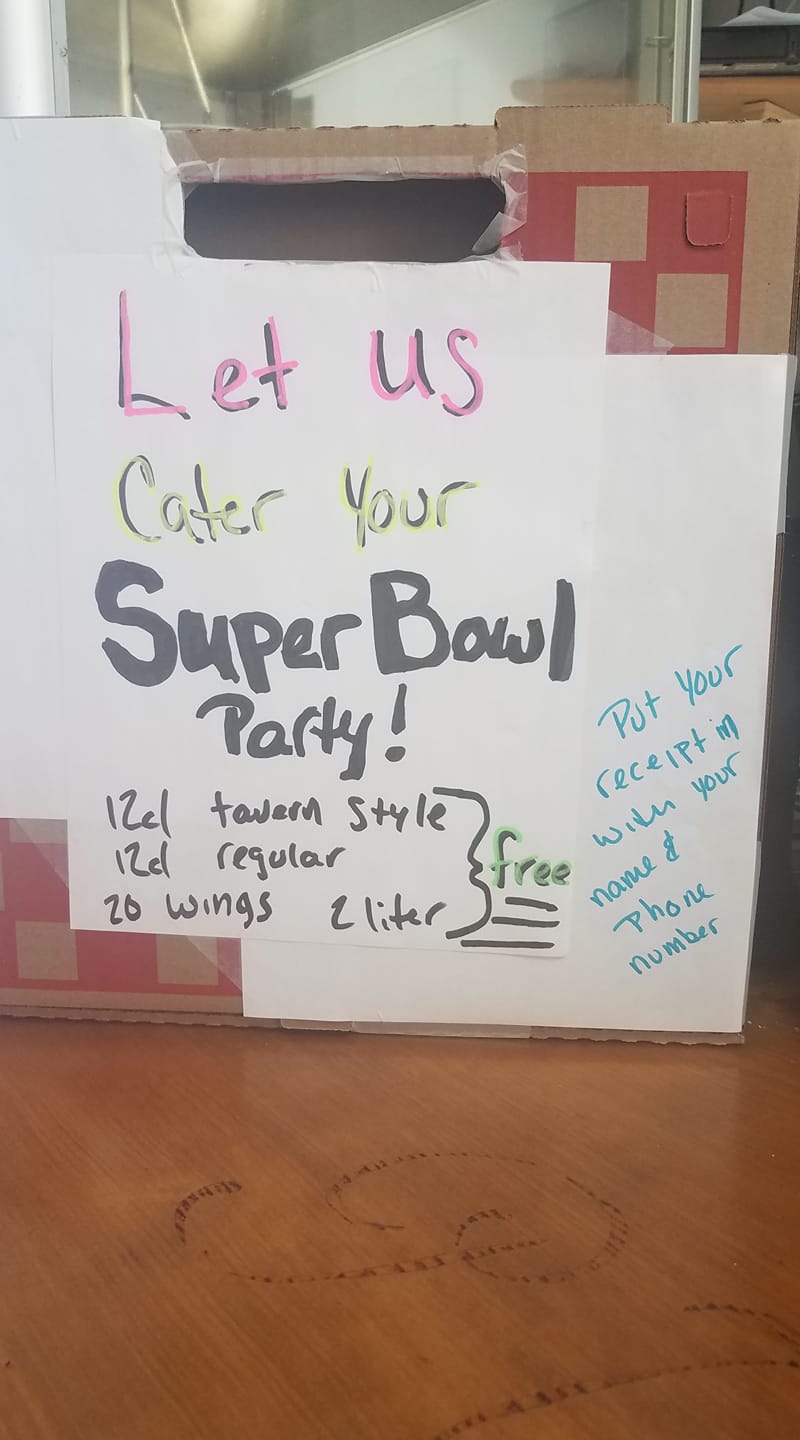 Let us
Cater Your
Super Bowl
Party!
12d tavern style
12d regular
20 wings 2 liter
free
Put Your
receipt in
with your
name &
Phone
number